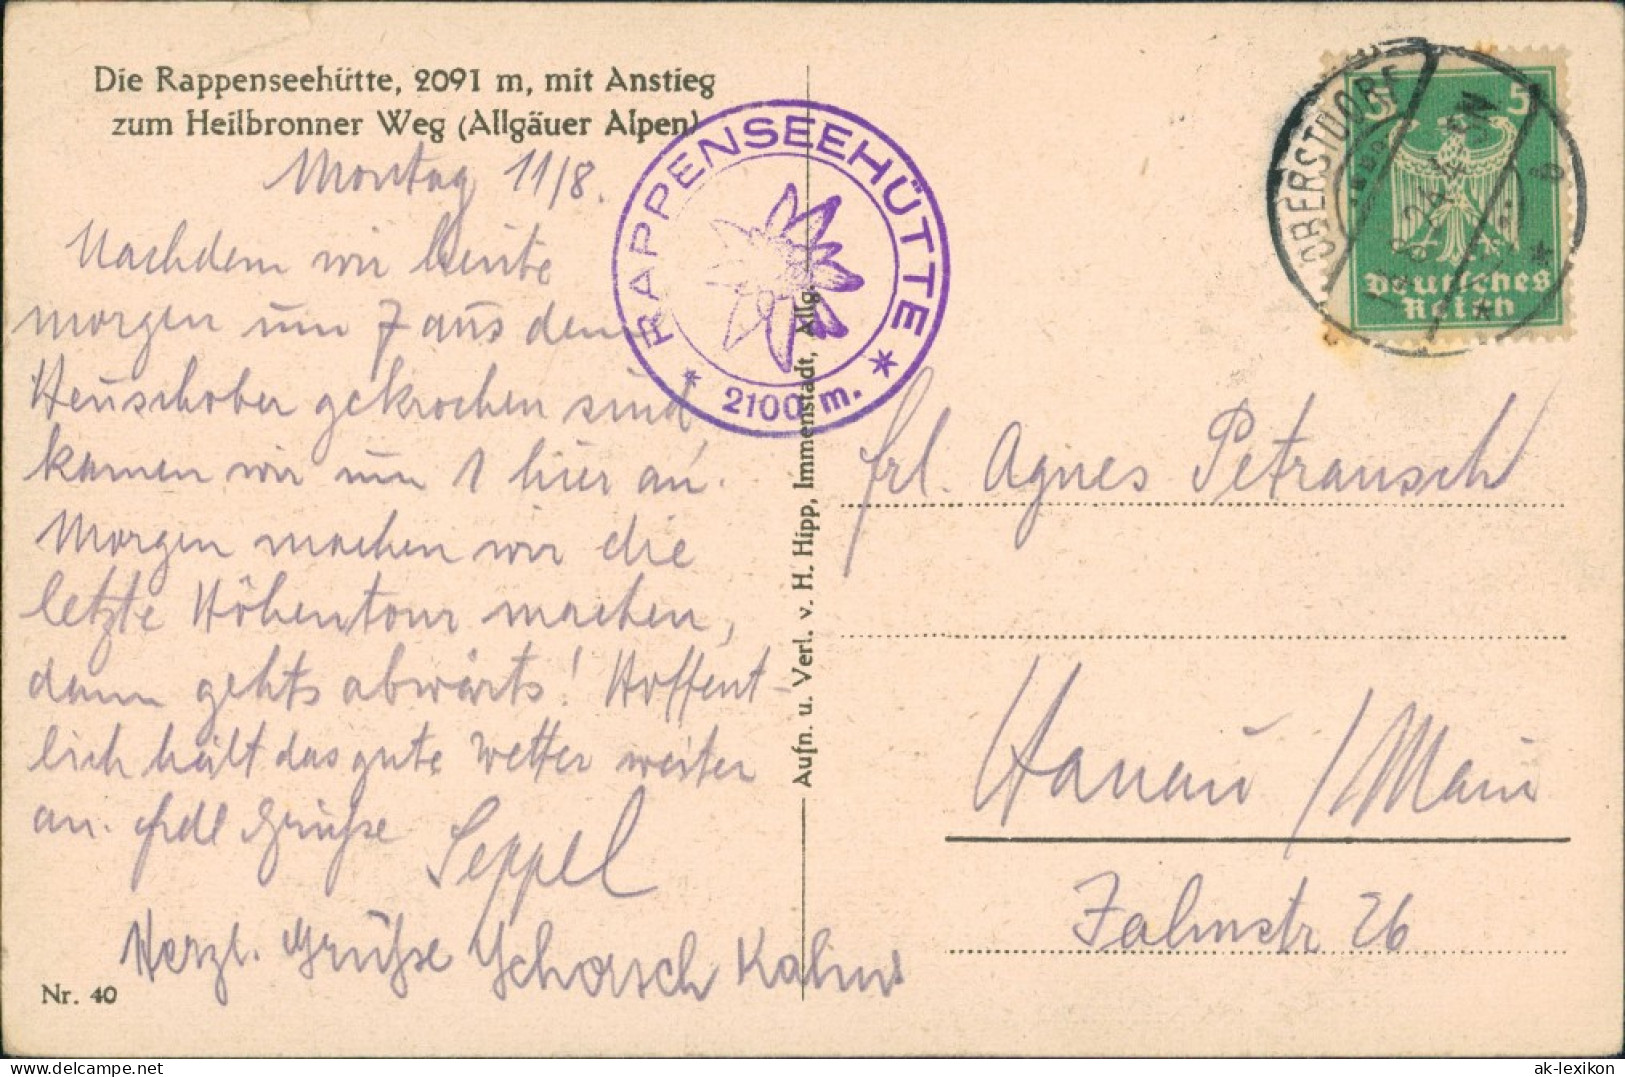 Die Rappenseehütte, 2091 m, mit Anstieg
zum Heilbronner Weg (Allgäuer Alpen)
RAPPENSEEHÜTTE
* 2100 m. *
OBERSTDORF
5 5
Deutsches
Reich
Montag 11/8.
Nachdem wir heute
morgen um 7 aus dem
Heuschober gekrochen sind,
kamen wir um 1 hier an.
Morgen machen wir die
letzte Höhentour machen,
dann gehts abwärts! Hoffent-
lich hält das gute Wetter weiter
an. frdl Grüße
Seppel
Herzl. Grüße Schorsch Kahns
Nr. 40
Aufn. u. Verl. v. H. Hipp, Immenstadt, Allg.
Frl. Agnes Petrausch
Hanau / Main
26
ak-ansichtskarten.de
ak-lexikon